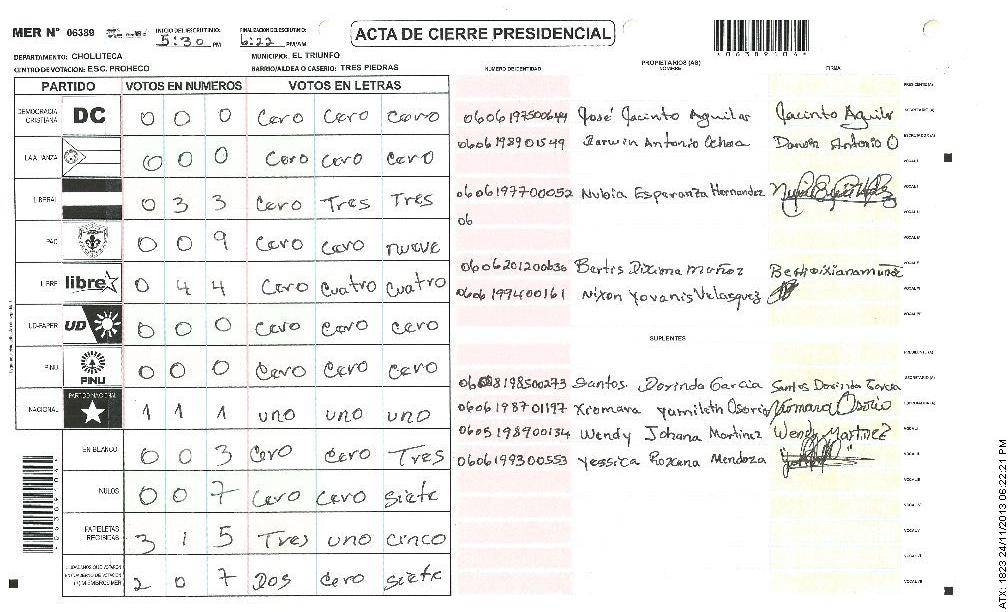 MER N° 06389 INICIO DEL ESCRUTINIO: 5:30 PM FINALIZACION DEL ESCRUTINIO: 6:22 PM/AM
ACTA DE CIERRE PRESIDENCIAL
*06389104*
DEPARTAMENTO: CHOLUTECA MUNICIPIO: EL TRIUNFO
CENTRO DE VOTACION: ESC. PROHECO BARRIO/ALDEA O CASERIO: TRES PIEDRAS
PARTIDO VOTOS EN NUMEROS VOTOS EN LETRAS
DEMOCRACIA CRISTIANA DC 0 0 0 Cero Cero Cero
LA ALIANZA 0 0 0 Cero Cero Cero
LIBERAL 0 3 3 Cero Tres Tres
PAC 0 0 9 Cero Cero nueve
LIBRE libre 0 4 4 Cero Cuatro Cuatro
UD-FAPER UD 0 0 0 Cero Cero Cero
PINU PINU 0 0 0 Cero Cero Cero
NACIONAL PARTIDO NACIONAL 1 1 1 uno uno uno
EN BLANCO 0 0 3 Cero Cero Tres
NULOS 0 0 7 Cero Cero Siete
PAPELETAS RECIBIDAS 3 1 5 Tres uno cinco
CIUDADANOS QUE VOTARON 2 0 7 Dos Cero Siete
PROPIETARIOS (AS)
NUMERO DE IDENTIDAD NOMBRE FIRMA
PRESIDENTE (A)
0606197500644 José Jacinto Aguilar Jacinto Aguilar SECRETARIO (A)
0606198901549 Darwin Antonio Ochoa Darwin Antonio O ESCRUTADOR (A)
VOCAL I
0606197700052 Nubia Esperanza Hernandez
06
0606201200636 Bertis Dixiana Muñoz
0606199400161 Nixon Yovanis Velasquez
SUPLENTES
PRESIDENTE (A)
198500273 Santos Dorinda Garcia Santos Dorinda Garcia SECRETARIO (A)
0606198701197 Xiomara Yamileth Osorio Xiomara Osorio
0605198900134 Wendy Johana Martinez Wendy Martinez
0606199300553 Yessica Roxana Mendoza
ATX: 1823 24/11/2013 06:22:21 PM